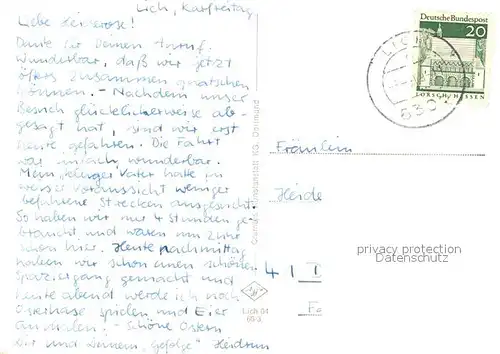 Lich, Karfreitag
Liebe Heiderose!
Danke für Deinen Anruf.
Wunderbar, daß wir jetzt
öfters zusammen quatschen
können. - Nachdem unser
Besuch glücklicherweise ab-
gesagt hat, sind wir erst
heute gefahren. Die Fahrt
war einfach wunderbar.
Mein "kluger" Vater hatte in
weiser Voraussicht weniger
befahrene Strecken ausgesucht.
So haben wir nur 4 Stunden ge-
braucht und waren um
schon hier. Heute nachmittag
haben wir schon einen schönen
Spaziergang gemacht und
heute abend werde ich noch
Osterhase spielen und Eier
anmalen. - Schöne Ostern
Dir und Deinem "Gefolge" Heidrun
Deutsche Bundespost
20
LORSCH/HESSEN
LICH
Fräulein
Heide
privacy protection
Datenschutz
4 I I
Fe
Lich 04